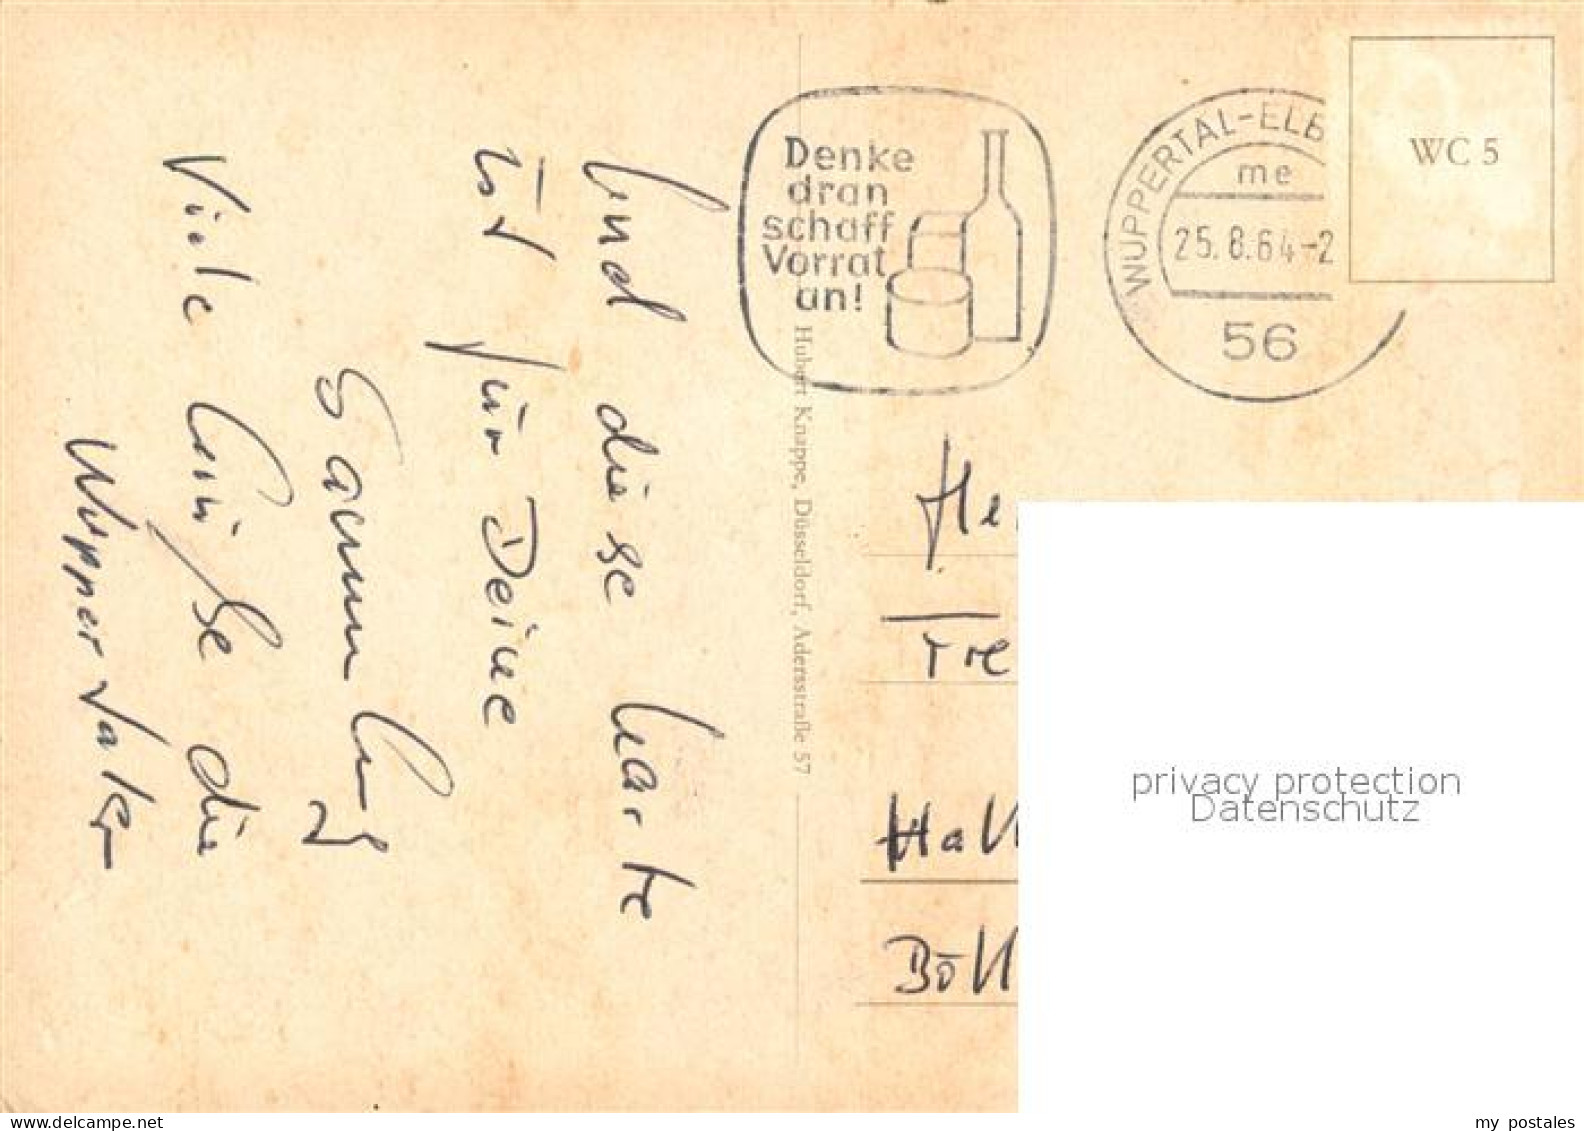 Und diese Karte
ist für Deine
Sammlung
Viele Grüße die
Wuppertaler
Hubert Knappe, Düsseldorf, Adersstraße 57
Denke
dran
schaff
Vorrat
an!
WUPPERTAL-ELB
me
25.8.64-2
56
WC 5
He
Tre
Hall
Böll
privacy protection
Datenschutz
www.delcampe.net
my postales